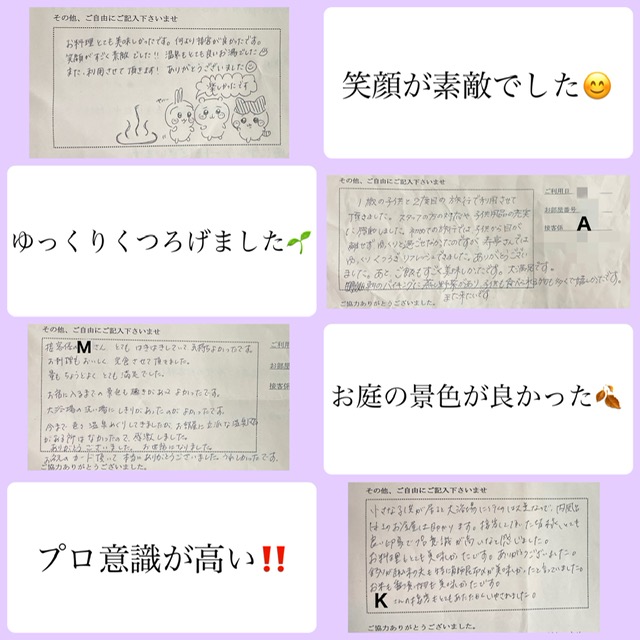 その他、ご自由にご記入下さいませ
お料理とても美味しかったです。何より接客が良かったです。
笑顔がすごく素敵でした!! 温泉もとても良いお湯でした
また、利用させて頂きます! ありがとうございました
楽しかったです
笑顔が素敵でした😊
ゆっくりくつろげました🌱
その他、ご自由にご記入下さいませ
1歳の子供と2度目の旅行で利用させて
頂きました。スタッフの方の対応や子供用品の充実
に感動しました。初めての旅行では子供から目が
離せずゆっくりと過ごせなかったのですが
ゆっくりくつろぎ、リフレッシュできました。ありがとうござい
ました。あと、ご飯もすごく美味しかったです。大満足です。
また来たいです
ご利用日
お部屋番号
接客係
A
ご協力ありがとうございました。
その他、ご自由にご記入下さいませ
接客係のMさん とても はきはきしていて、気持ちよかったです。
お料理もおいしく 完食させて頂きました。
量もちょうどよく とても満足でした。
お宿に入るまでの景色も趣きがあって よかったです。
大浴場の洗い場に しきりがあったのがよかったです。
今まで 色々 温泉めぐりしてきましたが、お部屋に立派な温泉
がある所はなかったので、感激しました。
ありがとうございました。お世話になりました。
頂いて 本当にありがとうございました。うれしかったです。
ご利用
お部屋
接客係
ご協力ありがとうございました。
お庭の景色が良かった🍂
プロ意識が高い‼️
その他、ご自由にご記入下さいませ
小さな子供が居ると大浴場に行くのは大変なので、内風呂
お料理もとても美味しかったです。ありがとうございました。
が美味しかったと言っていました。
K
ご協力ありがとうございました。